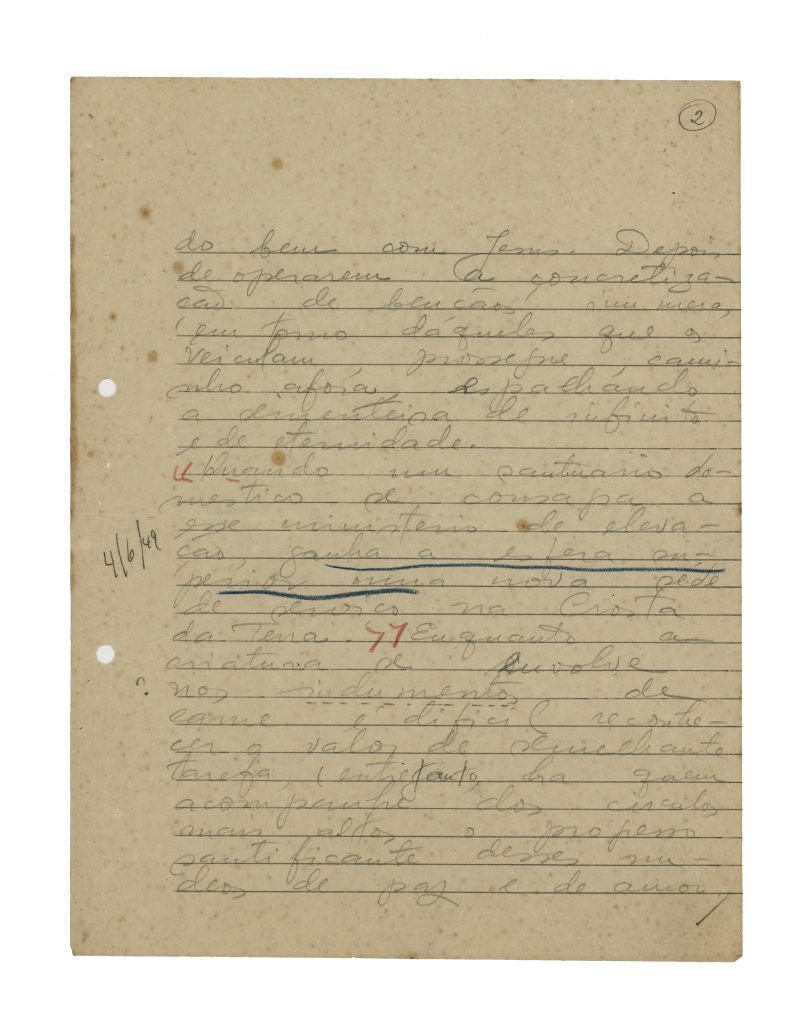 2
do bem com Jesus. Depois
de operarem a concretiza-
ção de bençãos inumeras
em torno dáqueles que os
veiculam prossegue, cami-
nho afóra, espalhando
a sementeira de infinito
e de eternidade.
"Quando um santuario do-
mestico se consagra a
esse ministerio de eleva-
ção, ganha a esfera su-
perior uma nova séde
de serviço na Crosta
da Terra." Enquanto a
criatura se envolve
nos indumentos de
carne é dificil reconhe-
cer o valor de semelhante
tarefa, entretanto, ha quem
acompanhe dos circulos
mais altos, o progresso
santificante desses nu-
cleos de paz e de amor,
4/6/49
?